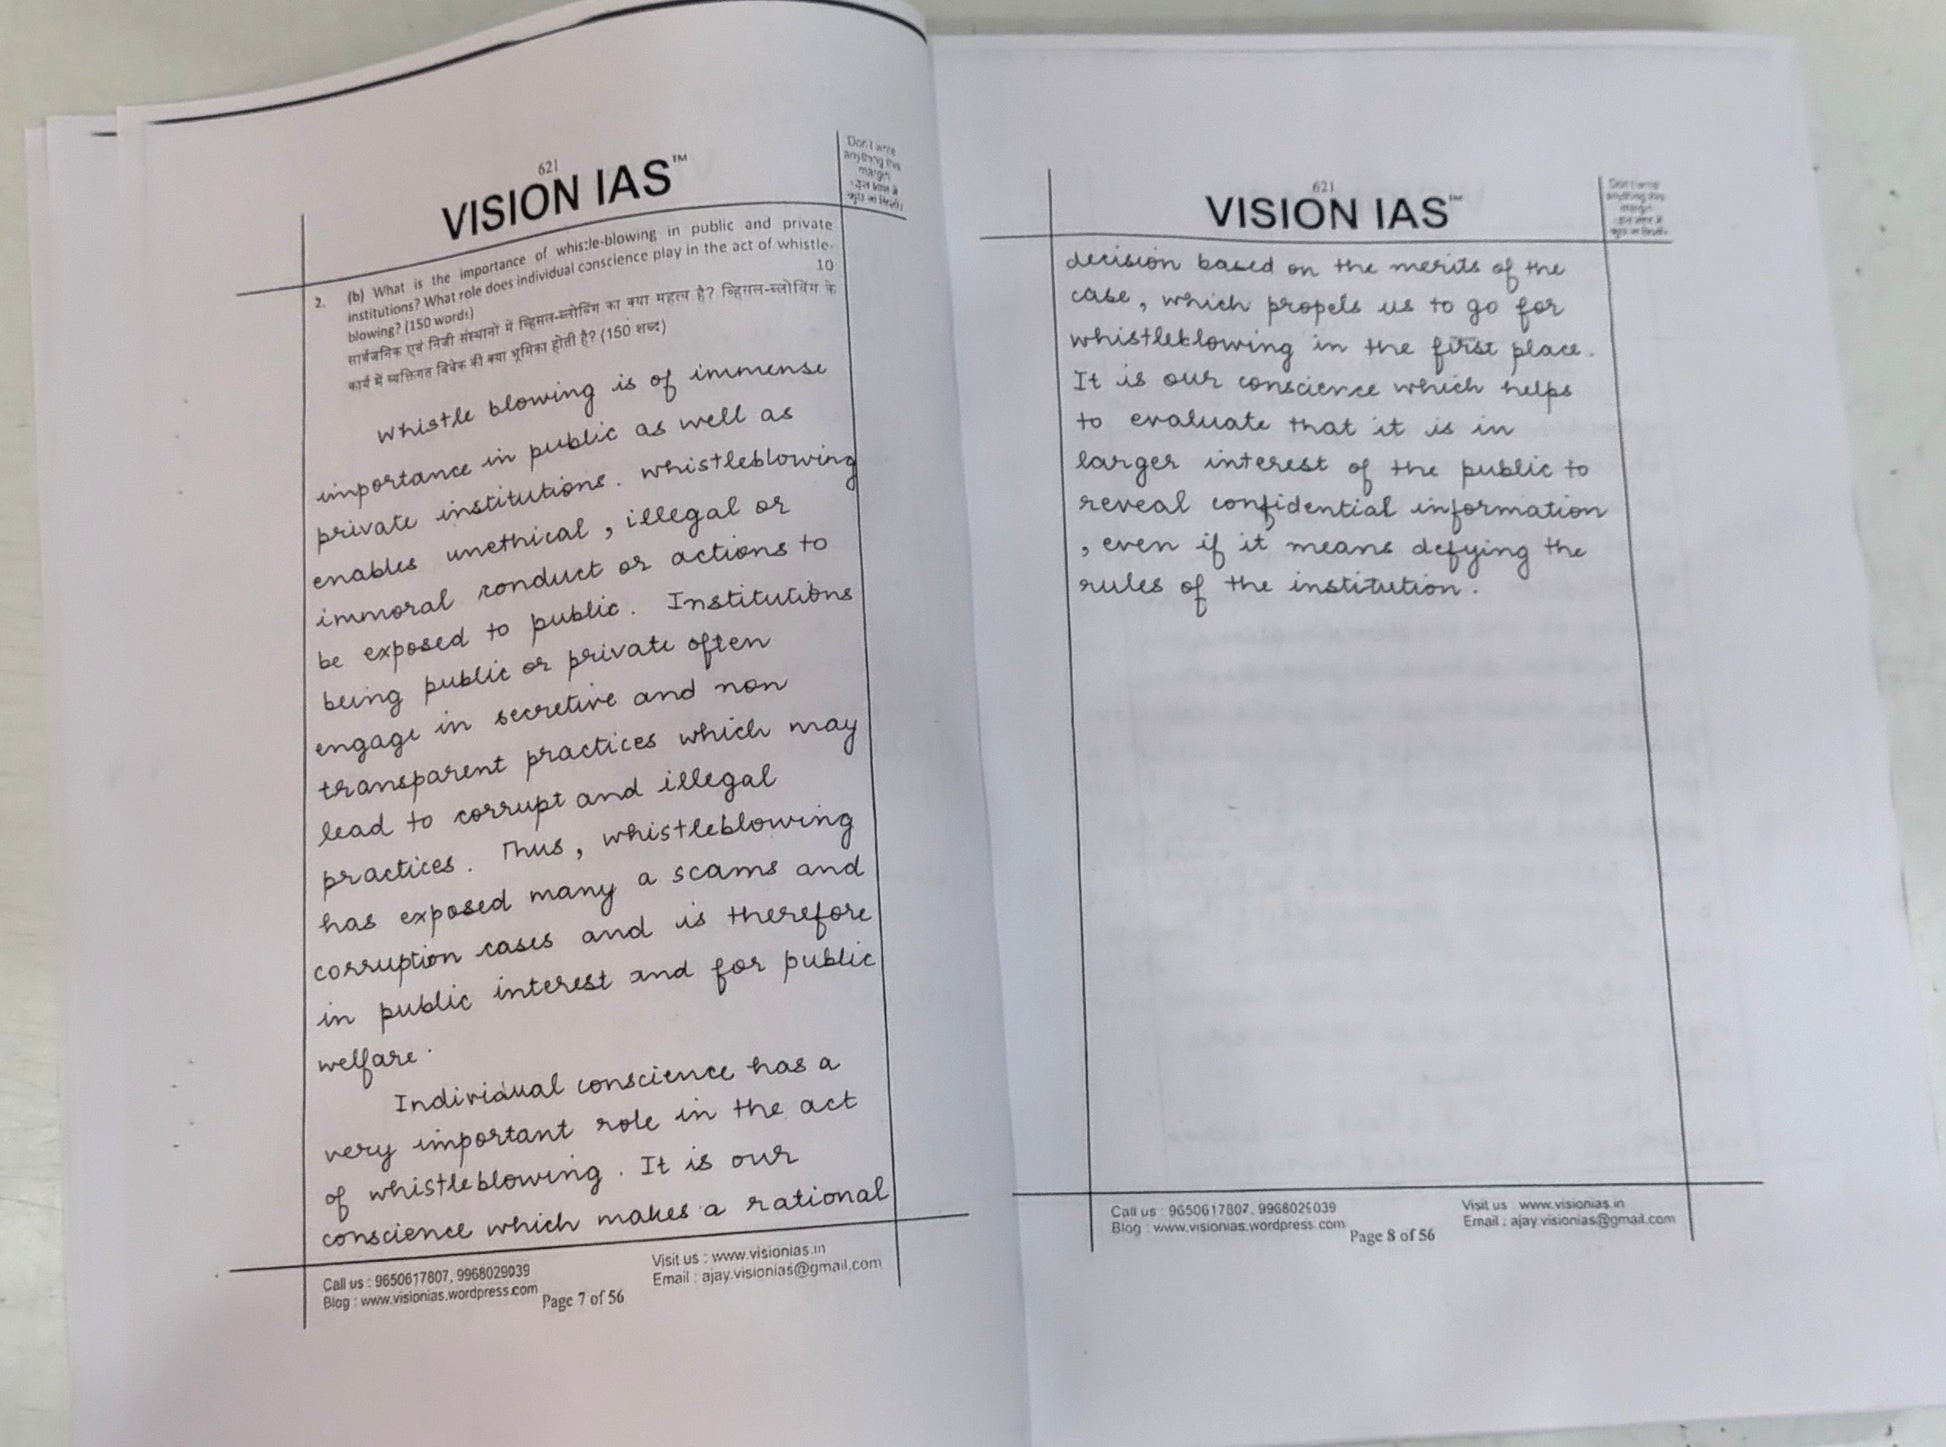 621
VISION IAS™
Don't write
anything this
margin
2. (b) What is the importance of whistle-blowing in public and private
institutions? What role does individual conscience play in the act of whistle-
blowing? (150 words) 10
सार्वजनिक एवं निजी संस्थानों में व्हिसल-ब्लोविंग का क्या महत्व है? व्हिसल-ब्लोविंग के
कार्य में व्यक्तिगत विवेक की क्या भूमिका होती है? (150 शब्द)
Whistle blowing is of immense
importance in public as well as
private institutions. Whistleblowing
enables unethical, illegal or
immoral conduct or actions to
be exposed to public. Institutions
being public or private often
engage in secretive and non
transparent practices which may
lead to corrupt and illegal
practices. Thus, whistleblowing
has exposed many a scams and
corruption cases and is therefore
in public interest and for public
welfare.
Individual conscience has a
very important role in the act
of whistleblowing. It is our
conscience which makes a rational
Call us : 9650617807, 9968029039
Visit us : www.visionias.in
Blog : www.visionias.wordpress.com
Email : ajay.visionias@gmail.com
Page 7 of 56
621
VISION IAS™
decision based on the merits of the
case, which propels us to go for
whistleblowing in the first place.
It is our conscience which helps
to evaluate that it is in
larger interest of the public to
reveal confidential information
, even if it means defying the
rules of the institution.
Call us : 9650617807, 9968029039
Visit us : www.visionias.in
Blog : www.visionias.wordpress.com
Email : ajay.visionias@gmail.com
Page 8 of 56